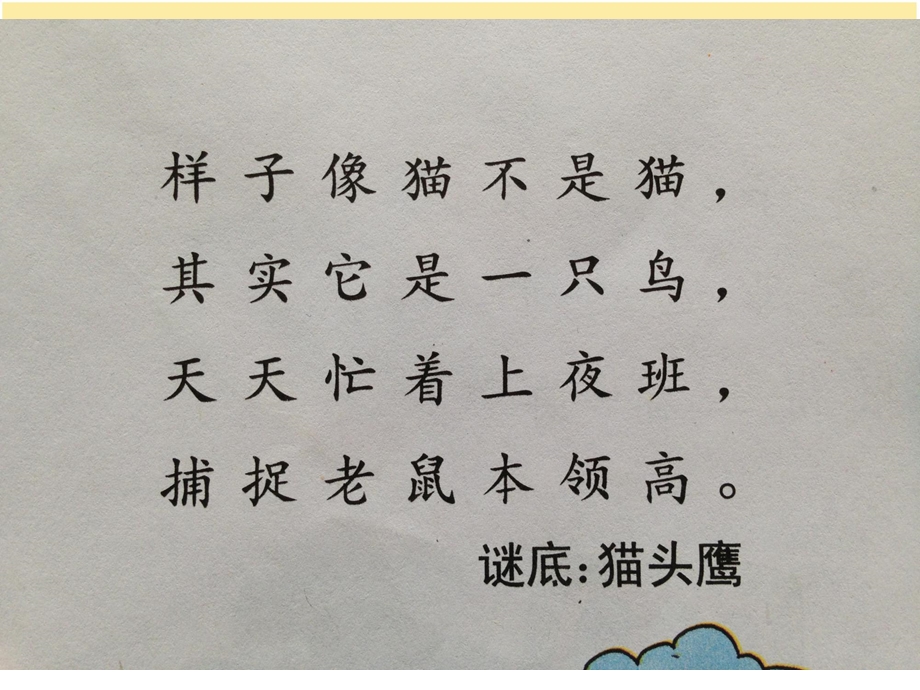 样子像猫不是猫，
其实它是一只鸟，
天天忙着上夜班，
捕捉老鼠本领高。
谜底:猫头鹰